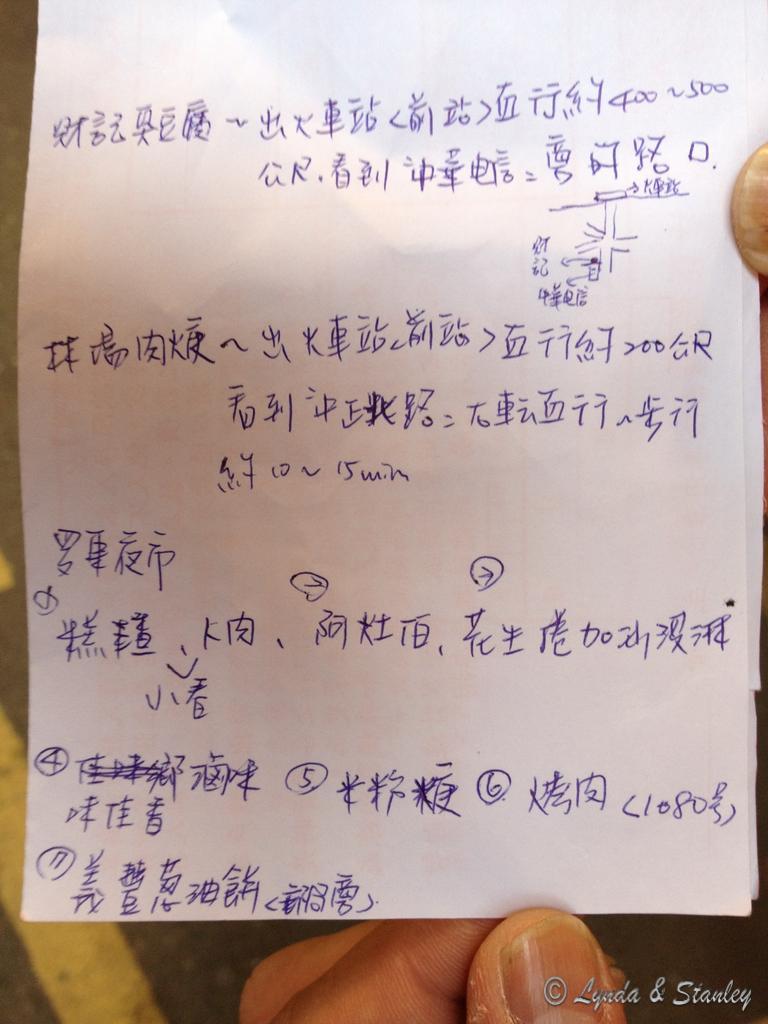 財記臭豆腐～出火車站<前站>直行約400～500
公尺.看到中華電信=旁的路口.
→火車站
財記
中華電信
林場肉焿～出火車站<前站>直行約200公尺
看到中正北路=右転直行～步行
約10～15min
罗東夜市
① ② ③
糕糬、卜肉、阿灶伯、花生卷加冰淇淋
小春
④ 鄉滷味 ⑤ 米粉焿 ⑥ 烤肉(1080号)
味佳香
⑦ 義豐葱油餅
© Lynda & Stanley